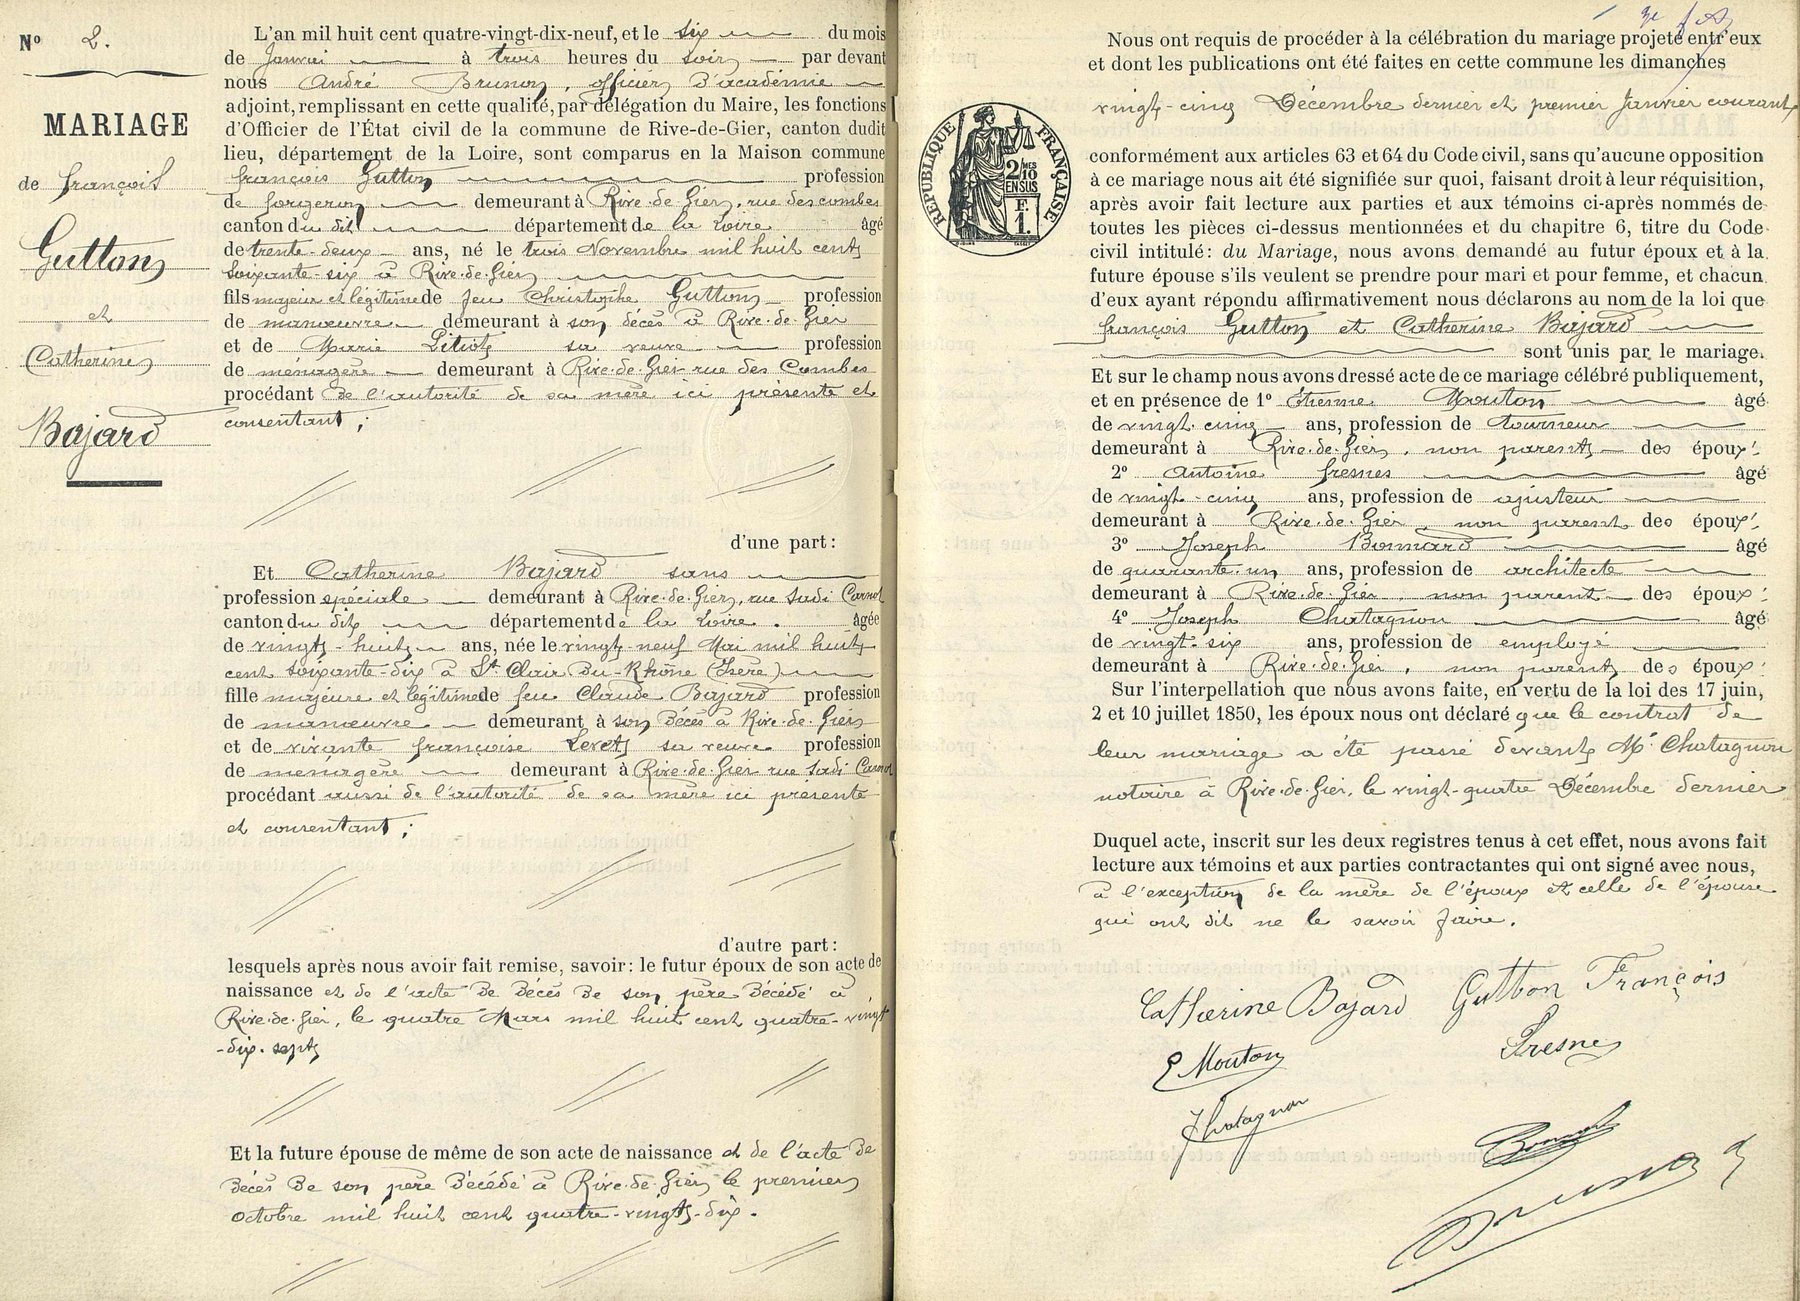 N° 2.
MARIAGE
de François
Gutton
et
Catherine
Bajard
L'an mil huit cent quatre-vingt-dix-neuf, et le six du mois
de Janvier à trois heures du soir par devant
nous André Brunon, officier d'académie
adjoint, remplissant en cette qualité, par délégation du Maire, les fonctions
d'Officier de l'État civil de la commune de Rive-de-Gier, canton dudit
lieu, département de la Loire, sont comparus en la Maison commune
François Gutton profession
de forgeron demeurant à Rive-de-Gier, rue des combes
canton du dit département de la Loire âgé
de trente-deux ans, né le trois Novembre mil huit cent
soixante-six à Rive-de-Gier
fils majeur et légitime de feu Christophe Gutton profession
de manœuvre demeurant à son décès à Rive-de-Gier
et de Marie sa veuve profession
de ménagère demeurant à Rive-de-Gier rue des Combes
procédant de l'autorité de sa mère ici présente et
consentant ;
d'une part :
Et Catherine Bajard sans
profession spéciale demeurant à Rive-de-Gier, rue Sadi Carnot
canton du dit département de la Loire. âgée
de vingt-huit ans, née le vingt-neuf Mai mil huit
cent soixante-dix à St Clair-du-Rhône (Isère)
fille majeure et légitime de feu Claude Bajard profession
de manœuvre demeurant à son décès à Rive-de-Gier
et de vivante Françoise Levet sa veuve profession
de ménagère demeurant à Rive-de-Gier rue Sadi Carnot
procédant aussi de l'autorité de sa mère ici présente
et consentant ;
d'autre part :
lesquels après nous avoir fait remise, savoir : le futur époux de son acte de
naissance et de l'acte de décès de son père décédé à
Rive-de-Gier, le quatre Mars mil huit cent quatre-vingt
-dix-sept
Et la future épouse de même de son acte de naissance et de l'acte de
décès de son père décédé à Rive-de-Gier le premier
octobre mil huit cent quatre-vingt-dix.
Nous ont requis de procéder à la célébration du mariage projeté entr'eux
et dont les publications ont été faites en cette commune les dimanches
vingt-cinq Décembre dernier et premier Janvier courant
RÉPUBLIQUE FRANÇAISE
2/10
MES
EN SUS
F.
1.
conformément aux articles 63 et 64 du Code civil, sans qu'aucune opposition
à ce mariage nous ait été signifiée sur quoi, faisant droit à leur réquisition,
après avoir fait lecture aux parties et aux témoins ci-après nommés de
toutes les pièces ci-dessus mentionnées et du chapitre 6, titre du Code
civil intitulé : du Mariage, nous avons demandé au futur époux et à la
future épouse s'ils veulent se prendre pour mari et pour femme, et chacun
d'eux ayant répondu affirmativement nous déclarons au nom de la loi que
François Gutton et Catherine Bajard
sont unis par le mariage.
Et sur le champ nous avons dressé acte de ce mariage célébré publiquement,
et en présence de 1° Étienne Mouton âgé
de vingt-cinq ans, profession de tourneur
demeurant à Rive-de-Gier, non parent des époux.
2° Antoine Fresnes âgé
de vingt-cinq ans, profession de ajusteur
demeurant à Rive-de-Gier, non parent des époux.
3° Joseph Bonnard âgé
de quarante-un ans, profession de architecte
demeurant à Rive-de-Gier, non parent des époux.
4° Joseph Chatagnon âgé
de vingt-six ans, profession de employé
demeurant à Rive-de-Gier, non parent des époux.
Sur l'interpellation que nous avons faite, en vertu de la loi des 17 juin,
2 et 10 juillet 1850, les époux nous ont déclaré que le contrat de
leur mariage a été passé devant Me Chatagnon
notaire à Rive-de-Gier, le vingt-quatre Décembre dernier
Duquel acte, inscrit sur les deux registres tenus à cet effet, nous avons fait
lecture aux témoins et aux parties contractantes qui ont signé avec nous,
à l'exception de la mère de l'époux et celle de l'épouse
qui ont dit ne le savoir faire.
Catherine Bajard Gutton François
E Mouton Fresne
JChatagnon
Bonnard
Brunon